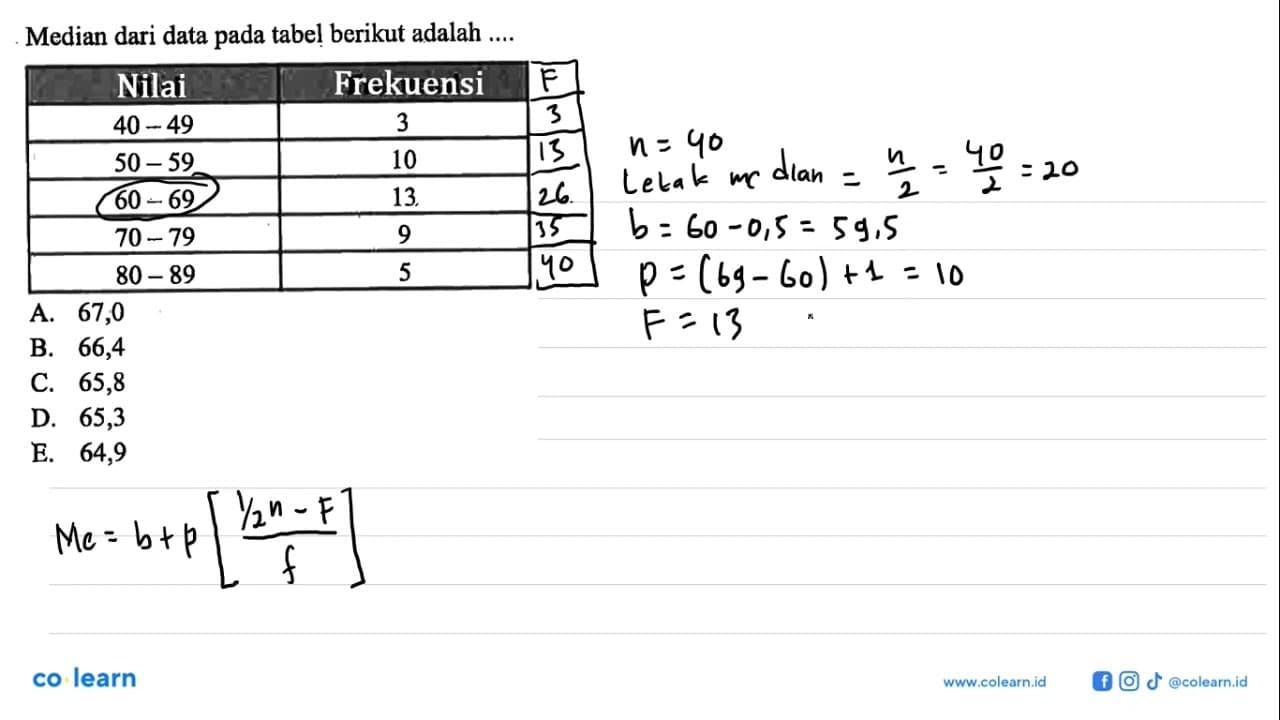 Median dari data pada tabel berikut adalah ....
Nilai Frekuensi F
40 – 49 3 3
50 – 59 10 13
60 – 69 13 26
70 – 79 9 35
80 – 89 5 40
A. 67,0
B. 66,4
C. 65,8
D. 65,3
E. 64,9
n = 40
Letak median = n/2 = 40/2 = 20
b = 60 - 0,5 = 59,5
p = (69 - 60) + 1 = 10
F = 13
Me = b + p [ (1/2 n - F) / f ]
co learn
www.colearn.id @colearn.id